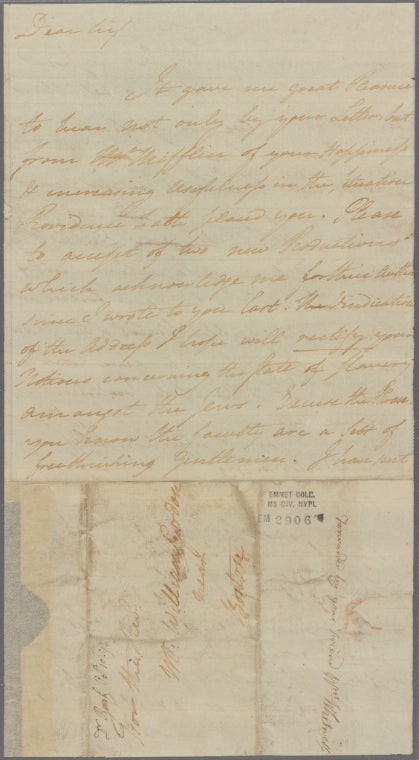 Dear Sir
It gave me great Pleasure
to hear not only by your Letter, but
from Mr Mifflin of your Happiness
& increasing usefulness in the situation
Providence hath placed you. Please
to accept of two new Productions
which acknowledge me for their Author
since I wrote to you last. The Vindication
of the Address I hope will rectify your
Notions concerning the State of slavery
amongst the Jews. Excuse the
you know the faculty are a sett of
freethinking Gentlemen. I have sent
EMMET COLL.
MS DIV. NYPL
EM 2906
For the Revd
Mr William Gordon
near
Boston
Forwarded by your friend Mr